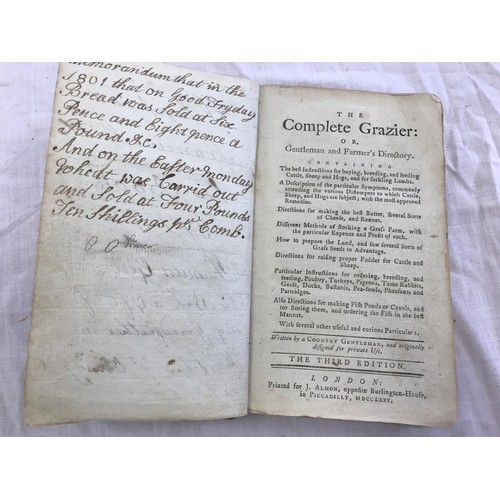 Memorandum that in the
1801 that on Good Fryday
Bread was Sold at Six
Pence and Eight pence a
Pound. &c.
And on the Easter Monday
Wheat was Carrid out
and Sold at Four Pounds
Ten Shillings pr. Comb.
THE
Complete Grazier:
OR,
Gentleman and Farmer's Directory.
CONTAINING
The best Instructions for buying, breeding, and feeding
Cattle, Sheep and Hogs, and for suckling Lambs.
A Description of the particular Symptoms, commonly
attending the various Distempers to which Cattle,
Sheep, and Hogs are subject; with the most approved
Remedies.
Directions for making the best Butter, several Sorts
of Cheese, and Rennet.
Different Methods of stocking a Grass Farm, with
the particular Expence and Profit of each.
How to prepare the Land, and sow several Sorts of
Grass Seeds to Advantage.
Directions for raising proper Fodder for Cattle and
Sheep.
Particular Instructions for ordering, breeding, and
feeding, Poultry, Turkeys, Pigeons, Tame Rabbits,
Geese, Ducks, Bustards, Pea-fowls, Pheasants and
Partridges.
Also Directions for making Fish Ponds or Canals, and
for storing them, and ordering the Fish in the best
Manner.
With several other useful and curious Particulars.
Written by a COUNTRY GENTLEMAN, and originally
designed for private Use.
THE THIRD EDITION.
LONDON:
Printed for J. ALMON, opposite Burlington-House,
in PICCADILLY, MDCCLXXV.